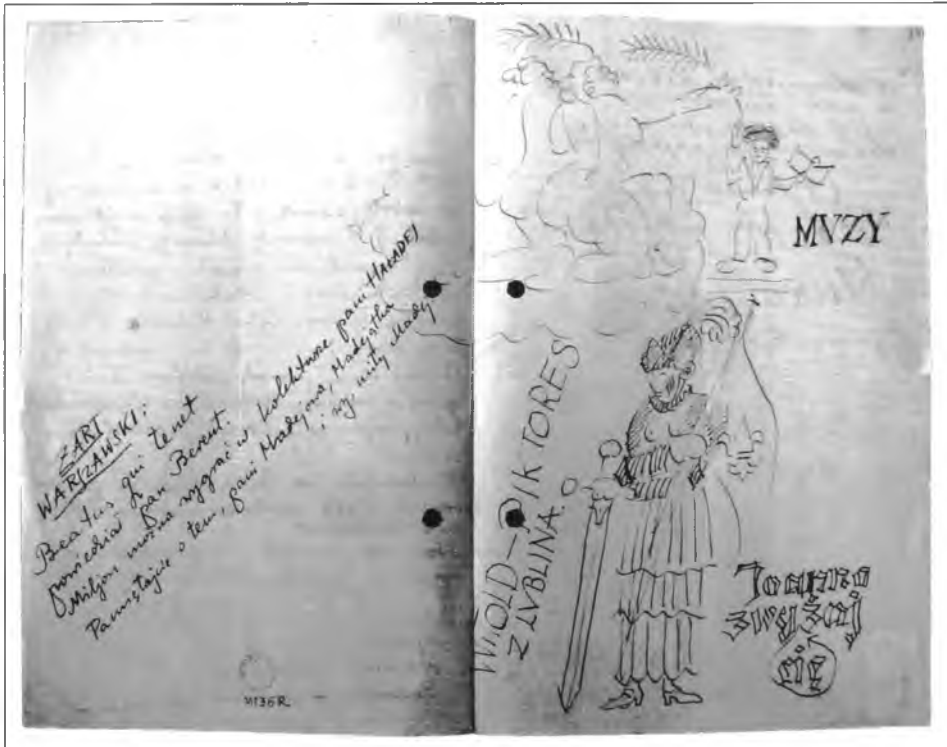 ŻART
WARSZAWSKI:
Beatus qui tenet
powiedział pan Berent.
Miljon można wygrać w kolekturze pani HAŁADEJ
Pamiętajcie o tem, pani Madejowa, Madejątka
i Ty, miły Madej
MVZY
WITOLD–PIKTORES
Z LVBLINA.
Joanno
zwyżaj
się